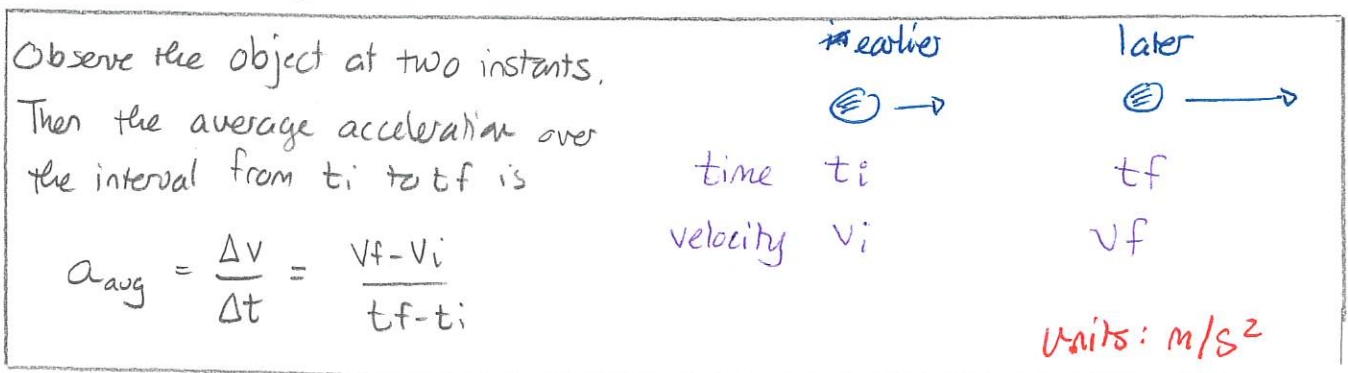 Observe the object at two instants.
Then the average acceleration over
the interval from ti to tf is
a avg = Δv/Δt = vf-vi/tf-ti
earlier later
time ti tf
velocity vi vf
units: m/s²